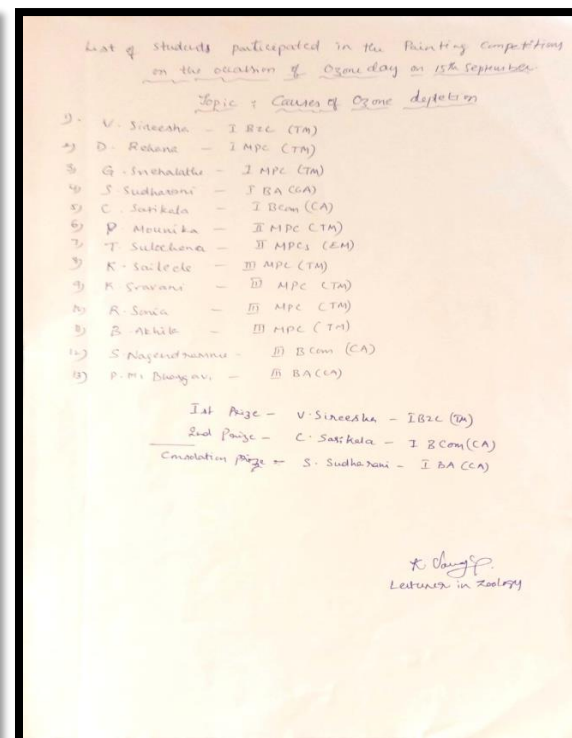 List of students participated in the Painting Competitions
on the occasion of Ozone day on 15th September
Topic : Causes of Ozone depletion
1). V. Sireesha - I BZC (TM)
2) D. Rehana - I MPC (TM)
3) G. Snehalatha - I MPC (TM)
4) S. Sudharani - I BA (CA)
5) C. Sasikala - I BCom (CA)
6) P. Mounika - II MPC (TM)
7) T. Sulochana - II MPCs (EM)
8) K. Saileela - III MPC (TM)
9) K. Sravani - III MPC (TM)
10) R. Sonia - III MPC (TM)
11) B. Akhila - III MPC (TM)
12) S. Nagendramma - III BCom (CA)
13) P. Bhargavi - III BA (CA)
Ist Prize - V. Sireesha - I BZC (TM)
2nd Prize - C. Sasikala - I BCom (CA)
Consolation prize - S. Sudharani - I BA (CA)
K.
Lecturer in Zoology